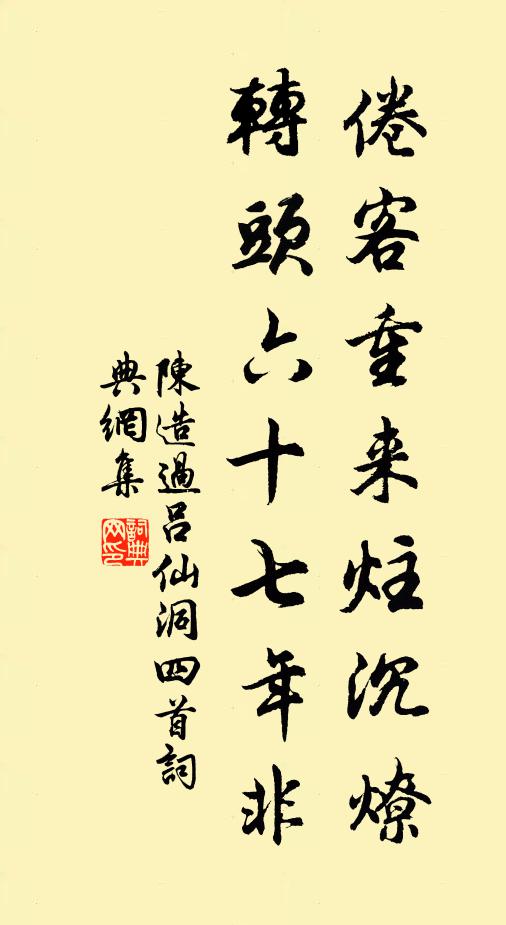 倦客重来炷沉燎
轉頭六十七年非
陳造過呂仙洞四首詞
典網集
詞典网印